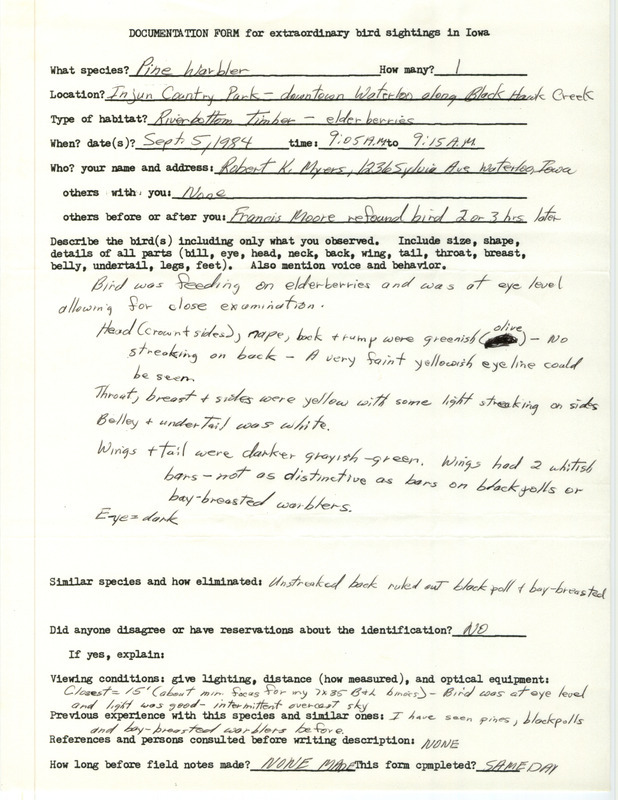 DOCUMENTATION FORM for extraordinary bird sightings in Iowa
What species? Pine Warbler How many? 1
Location? Injun Country Park - downtown Waterloo along Black Hawk Creek
Type of habitat? Riverbottom Timber - elderberries
When? date(s)? Sept 5, 1984 time: 9:05 A.M. to 9:15 A.M.
Who? your name and address: Robert K. Myers, 1236 Sylvia Ave Waterloo, Iowa
others with you: None
others before or after you: Francis Moore refound bird 2 or 3 hrs later
Describe the bird(s) including only what you observed. Include size, shape,
details of all parts (bill, eye, head, neck, back, wing, tail, throat, breast,
belly, undertail, legs, feet). Also mention voice and behavior.
Bird was feeding on elderberries and was at eye level
allowing for close examination.
Head (crown + sides), nape, back + rump were greenish (olive) - No
streaking on back - A very faint yellowish eyeline could
be seen
Throat, breast + sides were yellow with some light streaking on sides
Belley + undertail was white.
Wings + tail were darker grayish-green. Wings had 2 whitish
bars - not as distinctive as bars on blackpolls or
bay-breasted warblers.
Eye = dark
Similar species and how eliminated: Unstreaked back ruled out blackpoll + bay-breasted
Did anyone disagree or have reservations about the identification? NO
If yes, explain:
Viewing conditions: give lighting, distance (how measured), and optical equipment:
Closest = 15' (about min. focus for my 7x35 B+L binocs) - Bird was at eye level
and light was good - intermittent overcast sky
Previous experience with this species and similar ones: I have seen pines, blackpolls
and bay-breasted warblers before.
References and persons consulted before writing description: NONE
How long before field notes made? NONE MADE This form completed? SAME DAY